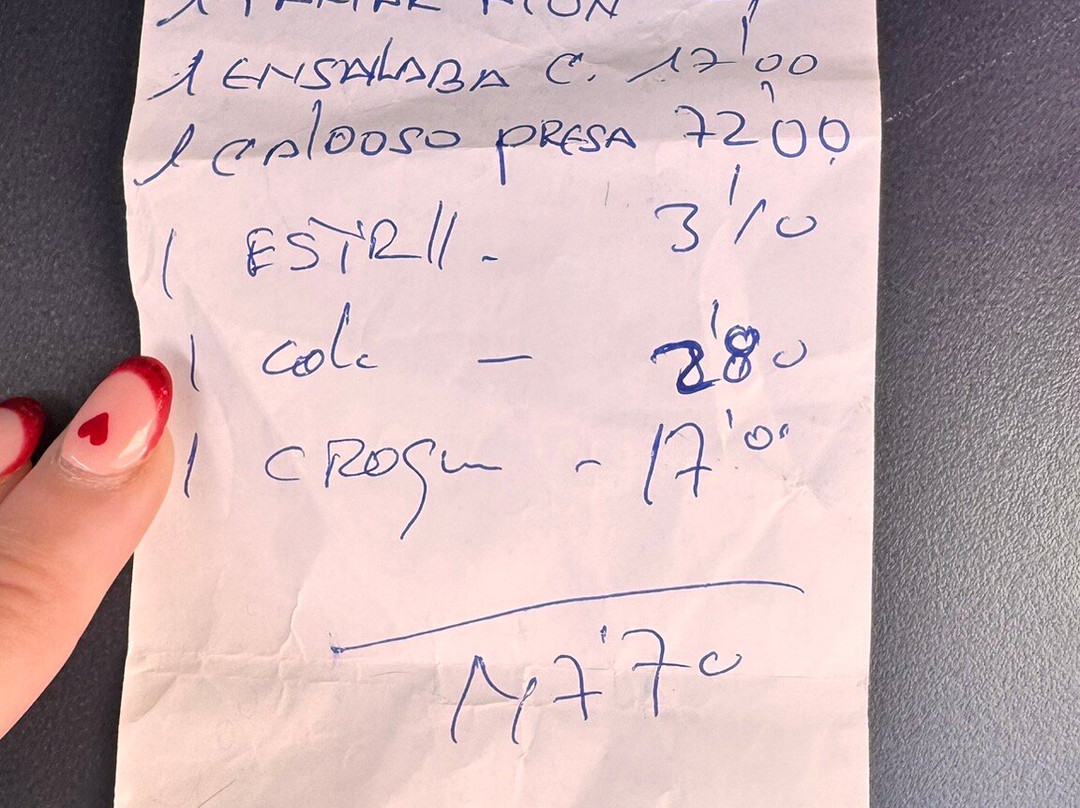 1 ENSALADA C. 17'00
1 CALDOSO PRESA 72'00
1 ESTRLL. 3'10
1 Cola - 2'80
1 CROQu - 17'00
117'70